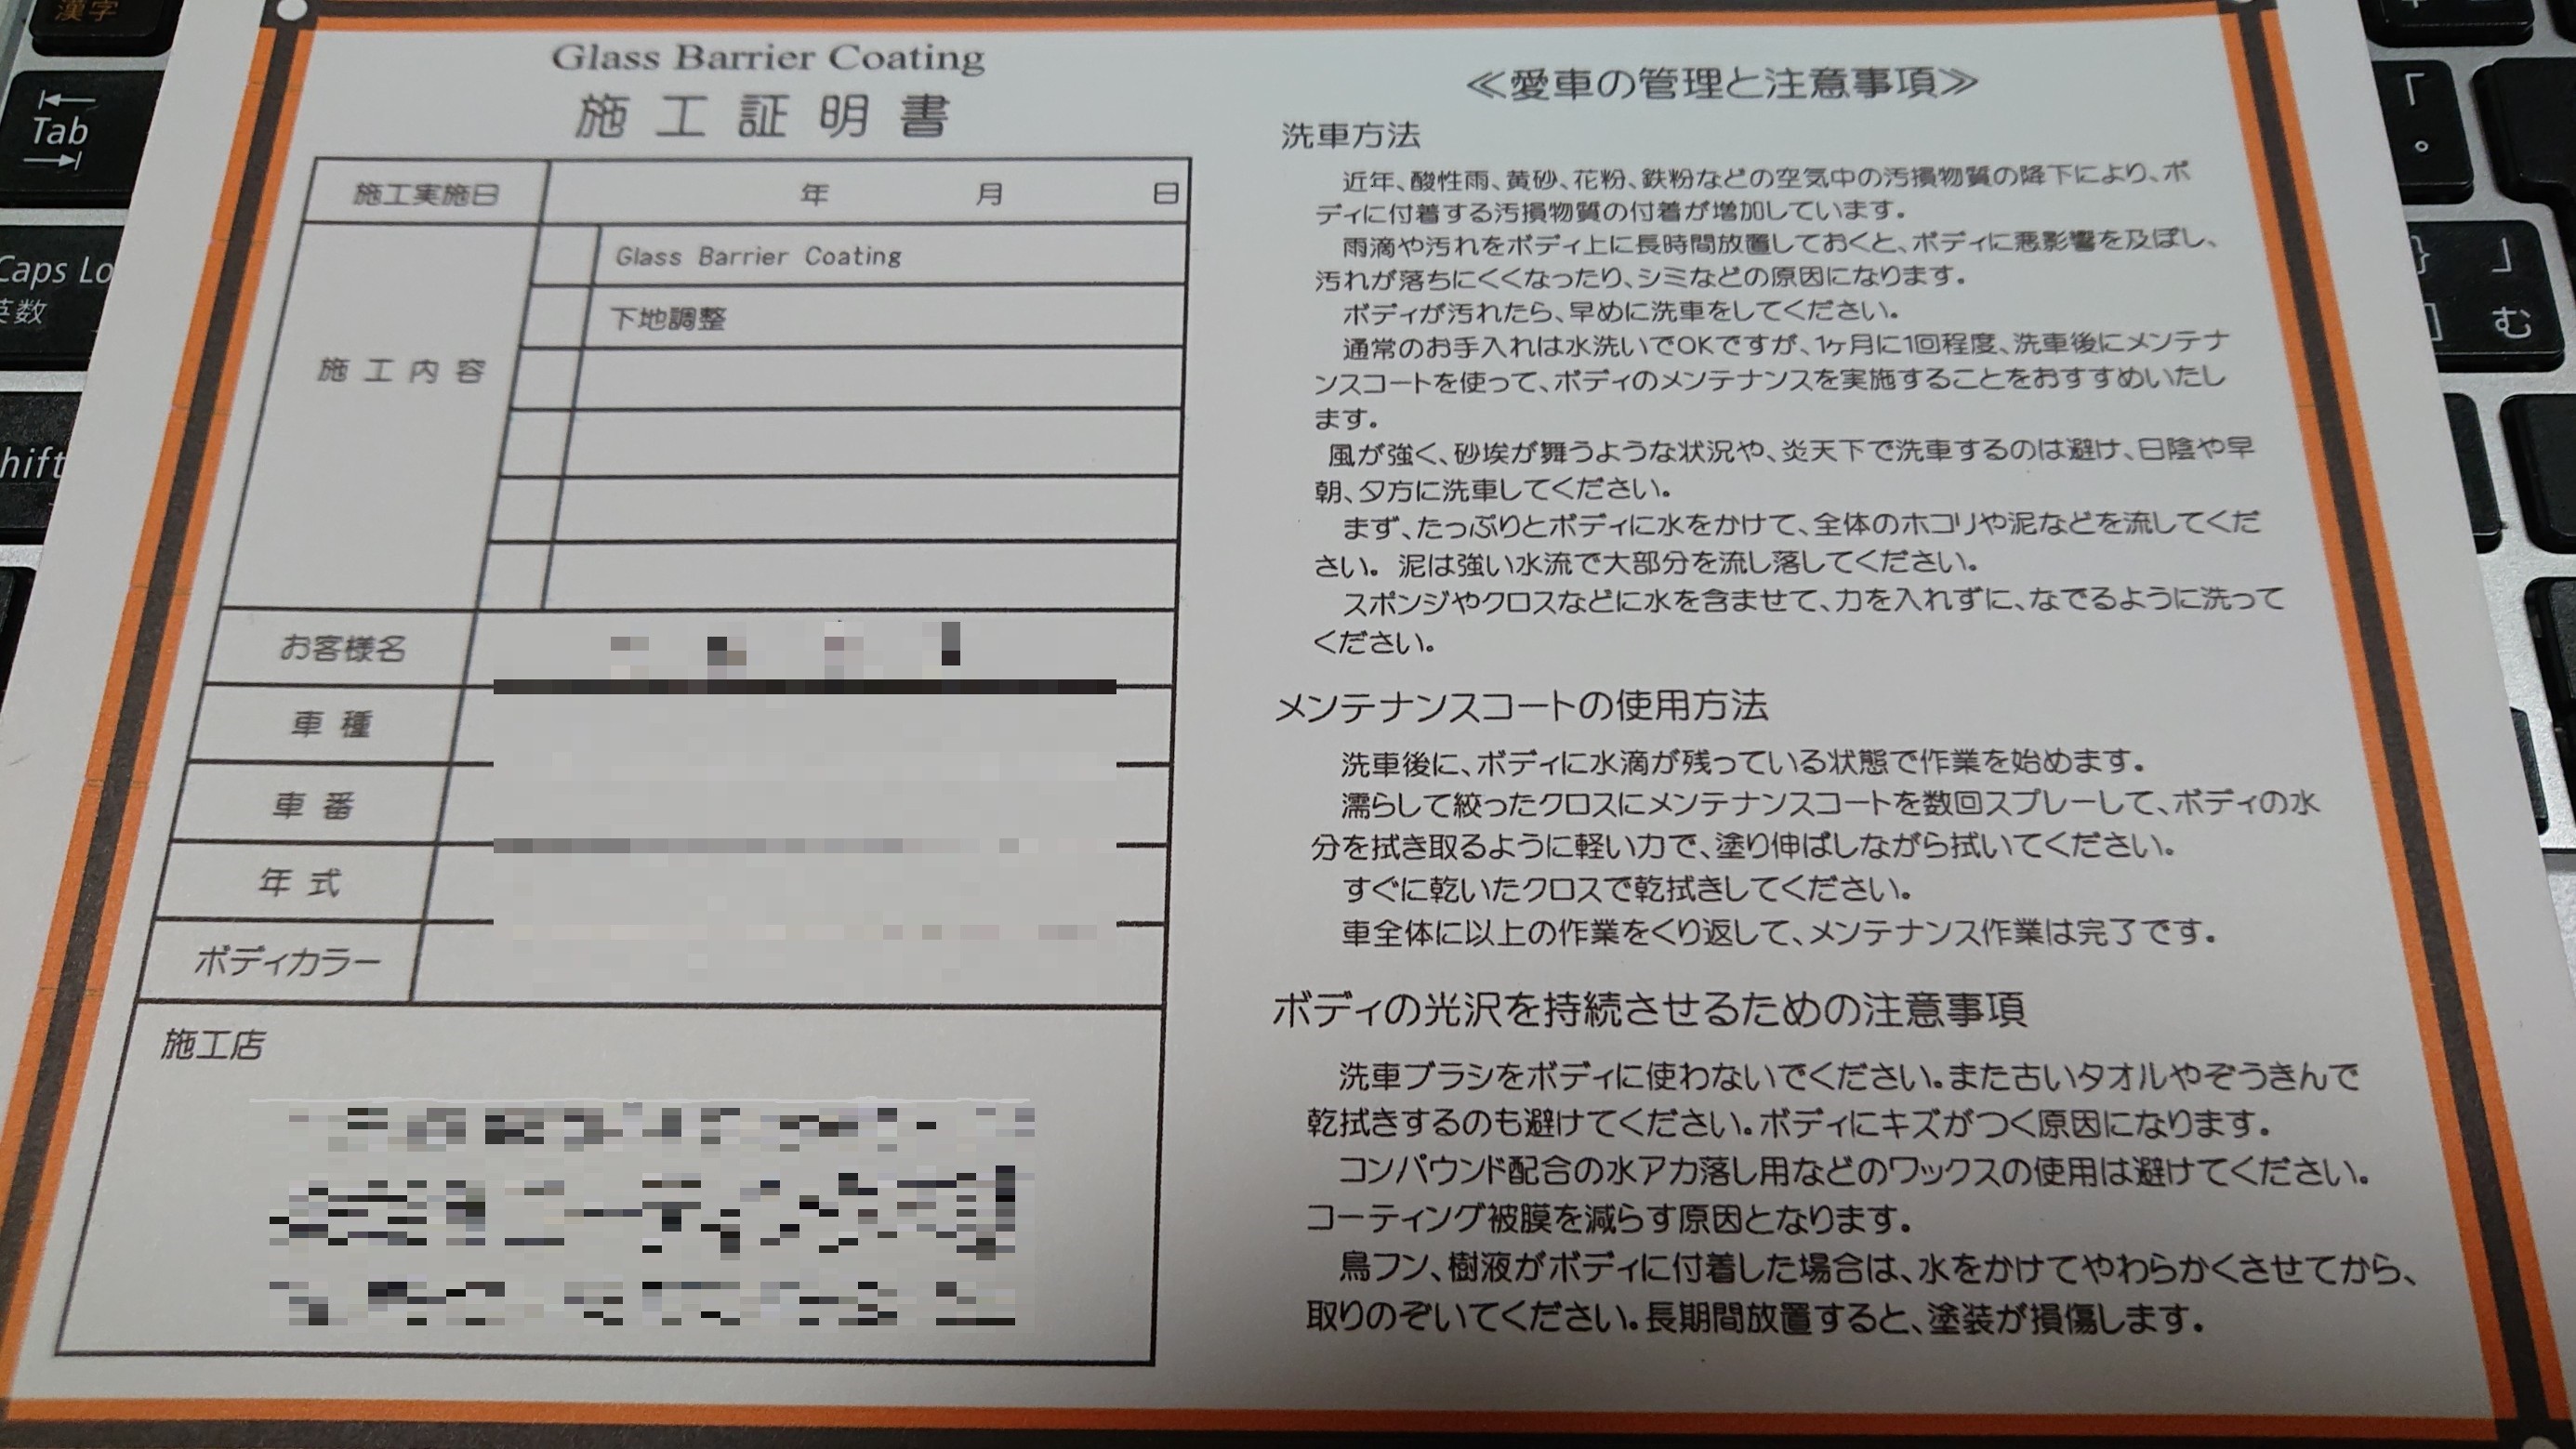 漢字
Tab
Caps Lo
英数
hift
「
。
}
」
む
Glass Barrier Coating
施工証明書
施工実施日 年 月 日
施工内容
Glass Barrier Coating
下地調整
お客様名
車種
車番
年式
ボディカラー
施工店
≪愛車の管理と注意事項≫
洗車方法
近年、酸性雨、黄砂、花粉、鉄粉などの空気中の汚損物質の降下により、ボ
ディに付着する汚損物質の付着が増加しています。
雨滴や汚れをボディ上に長時間放置しておくと、ボディに悪影響を及ぼし、
汚れが落ちにくくなったり、シミなどの原因になります。
ボディが汚れたら、早めに洗車をしてください。
通常のお手入れは水洗いでOKですが、1ヶ月に1回程度、洗車後にメンテナ
ンスコートを使って、ボディのメンテナンスを実施することをおすすめいたし
ます。
風が強く、砂埃が舞うような状況や、炎天下で洗車するのは避け、日陰や早
朝、夕方に洗車してください。
まず、たっぷりとボディに水をかけて、全体のホコリや泥などを流してくだ
さい。泥は強い水流で大部分を流し落してください。
スポンジやクロスなどに水を含ませて、力を入れずに、なでるように洗って
ください。
メンテナンスコートの使用方法
洗車後に、ボディに水滴が残っている状態で作業を始めます。
濡らして絞ったクロスにメンテナンスコートを数回スプレーして、ボディの水
分を拭き取るように軽い力で、塗り伸ばしながら拭いてください。
すぐに乾いたクロスで乾拭きしてください。
車全体に以上の作業をくり返して、メンテナンス作業は完了です。
ボディの光沢を持続させるための注意事項
洗車ブラシをボディに使わないでください。また古いタオルやぞうきんで
乾拭きするのも避けてください。ボディにキズがつく原因になります。
コンパウンド配合の水アカ落し用などのワックスの使用は避けてください。
コーティング被膜を減らす原因となります。
鳥フン、樹液がボディに付着した場合は、水をかけてやわらかくさせてから、
取りのぞいてください。長期間放置すると、塗装が損傷します。